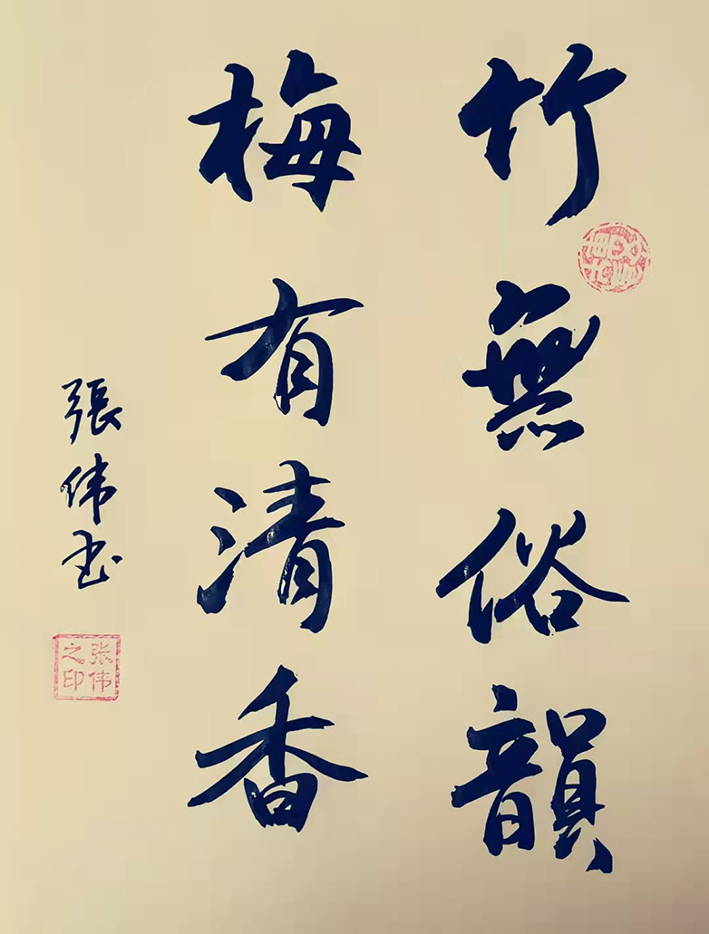 竹無俗韻
梅有清香
張伟书
张伟之印